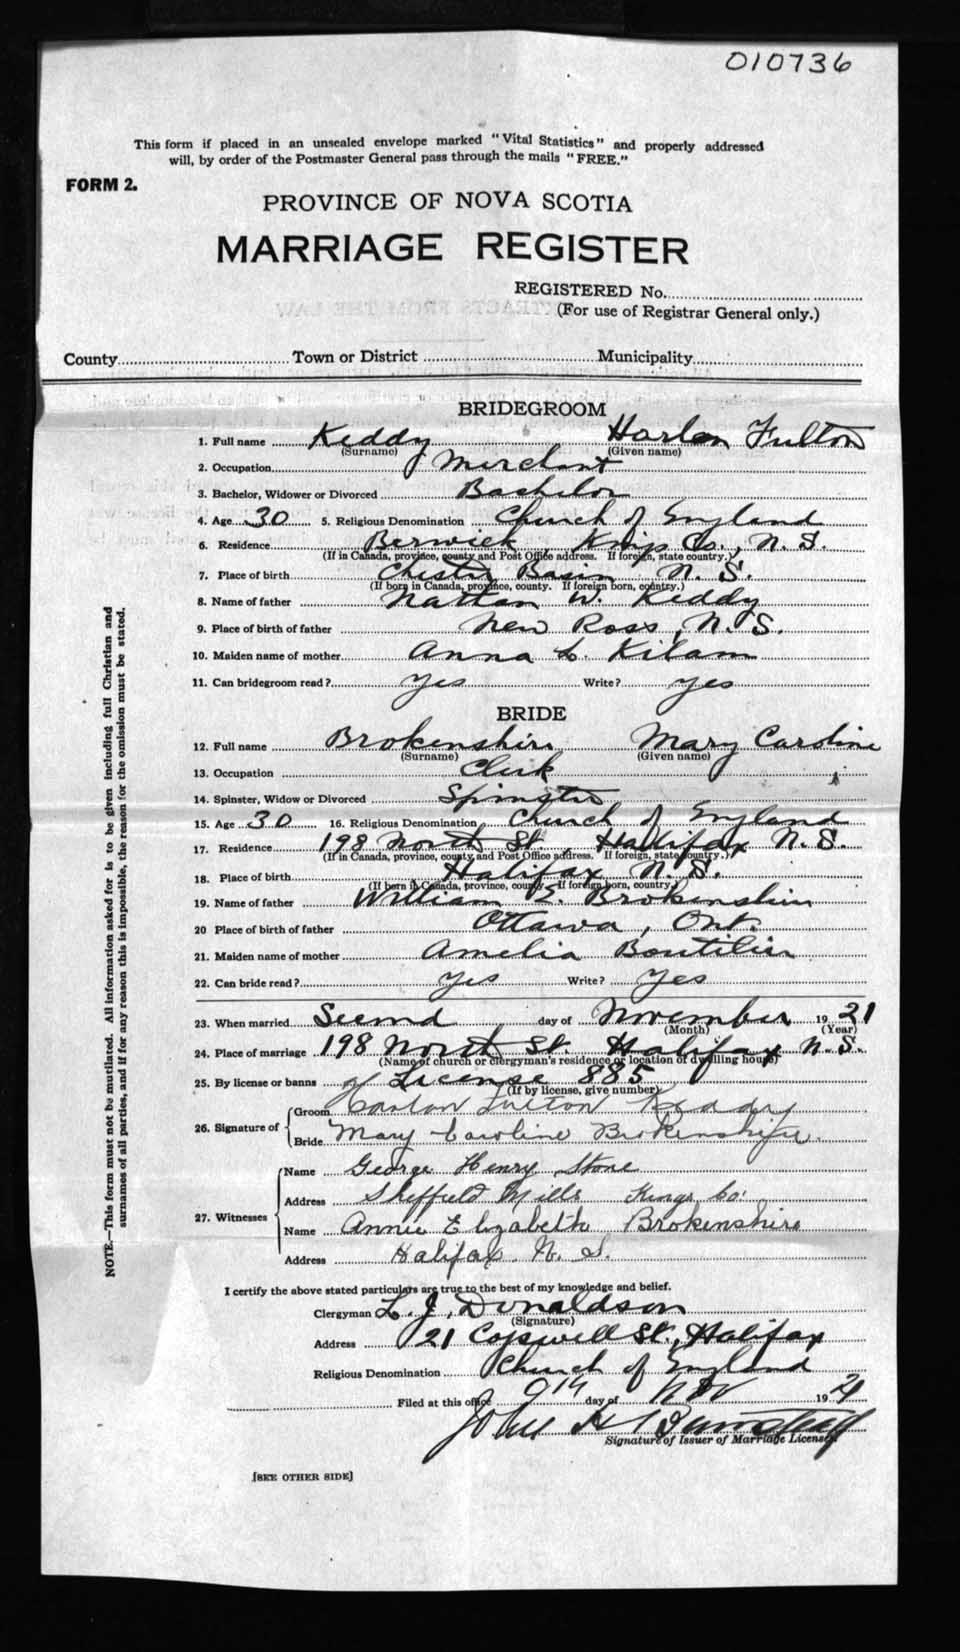 010736
This form if placed in an unsealed envelope marked "Vital Statistics" and properly addressed
will, by order of the Postmaster General pass through the mails "FREE."
FORM 2.
PROVINCE OF NOVA SCOTIA
MARRIAGE REGISTER
REGISTERED No.
(For use of Registrar General only.)
County Town or District Municipality
BRIDEGROOM
1. Full name Keddy Harlan Fulton
(Surname) (Given name)
2. Occupation Merchant
3. Bachelor, Widower or Divorced Bachelor
4. Age 30 5. Religious Denomination Church of England
6. Residence Berwick, Kings Co., N.S.
(If in Canada, province, county and Post Office address. If foreign, state country.)
7. Place of birth Chester Basin N.S.
(If born in Canada, province, county. If foreign born, country.)
8. Name of father Nathan W. Keddy
9. Place of birth of father New Ross, N.S.
10. Maiden name of mother Anna L. Kilam
11. Can bridegroom read? Yes Write? yes
BRIDE
12. Full name Brokenshire Mary Caroline
(Surname) (Given name)
13. Occupation Clerk
14. Spinster, Widow or Divorced Spinster
15. Age 30 16. Religious Denomination Church of England
17. Residence 198 North St., Halifax N.S.
(If in Canada, province, county and Post Office address. If foreign, state country.)
18. Place of birth Halifax N.S.
(If born in Canada, province, county. If foreign born, country.)
19. Name of father William E. Brokenshire
20 Place of birth of father Ottawa, Ont.
21. Maiden name of mother Amelia Boutilier
22. Can bride read? Yes Write? Yes
23. When married Second day of November 1921
(Month) (Year)
24. Place of marriage 198 North St. Halifax N.S.
(Name of church or clergyman's residence or location of dwelling house)
25. By license or banns License 885
(If by license, give number)
26. Signature of
Groom Fulton Keddy
Bride Mary Caroline Brokenshire.
27. Witnesses
Name George Henry Stone
Address Sheffield Mills Kings Co.
Name Annie Elizabeth Brokenshire
Address Halifax. N.S.
I certify the above stated particulars are true to the best of my knowledge and belief.
Clergyman L. J. Donaldson
(Signature)
Address 21 Cogswell St., Halifax
Religious Denomination Church of England
Filed at this office 9th day of Nov 1921
John H Barnstead
Signature of Issuer of Marriage Licenses.
[SEE OTHER SIDE]
NOTE.—This form must not be mutilated. All information asked for is to be given including full Christian and
surnames of all parties, and if for any reason this is impossible, the reason for the omission must be stated.